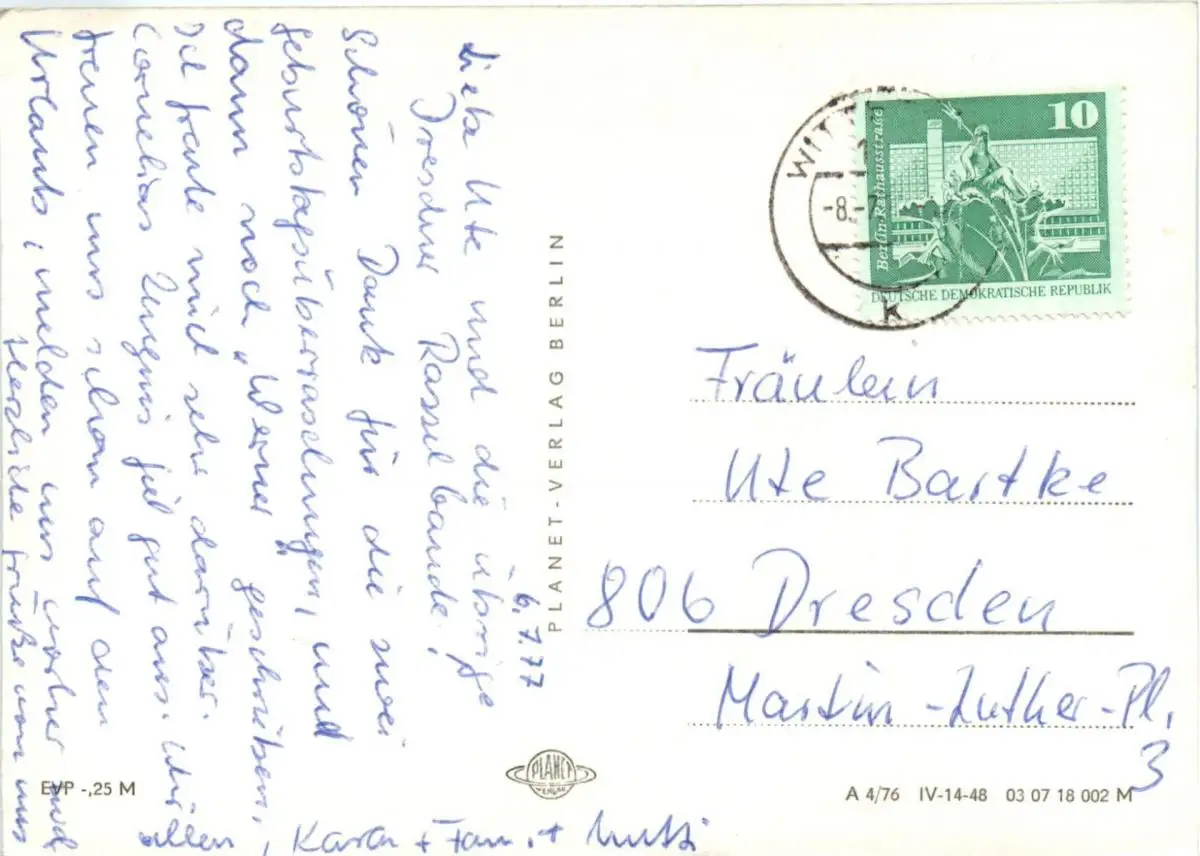 6.7.77
Liebe Ute und die übrige
Dresdner Rasselbande!
Schönen Dank für die zwei
Geburtstagsüberraschungen, und
dann noch „Werner" geschrieben,
Ich freute mich sehr darüber.
Cornelias Zeugnis fiel gut aus. Wir
freuen uns schon auf den
Urlaub, melden uns vorher noch
Herzliche Grüße von uns
allen, + Fam. + Mutti
PLANET-VERLAG BERLIN
WITT
-8.-7
k
10
Berlin, Rathausstraße
DEUTSCHE DEMOKRATISCHE REPUBLIK
Fräulein
Ute Bartke
806 Dresden
Martin-Luther-Pl.
3
EVP -,25 M
PLANET
VERLAG
A 4/76 IV-14-48 03 07 18 002 M